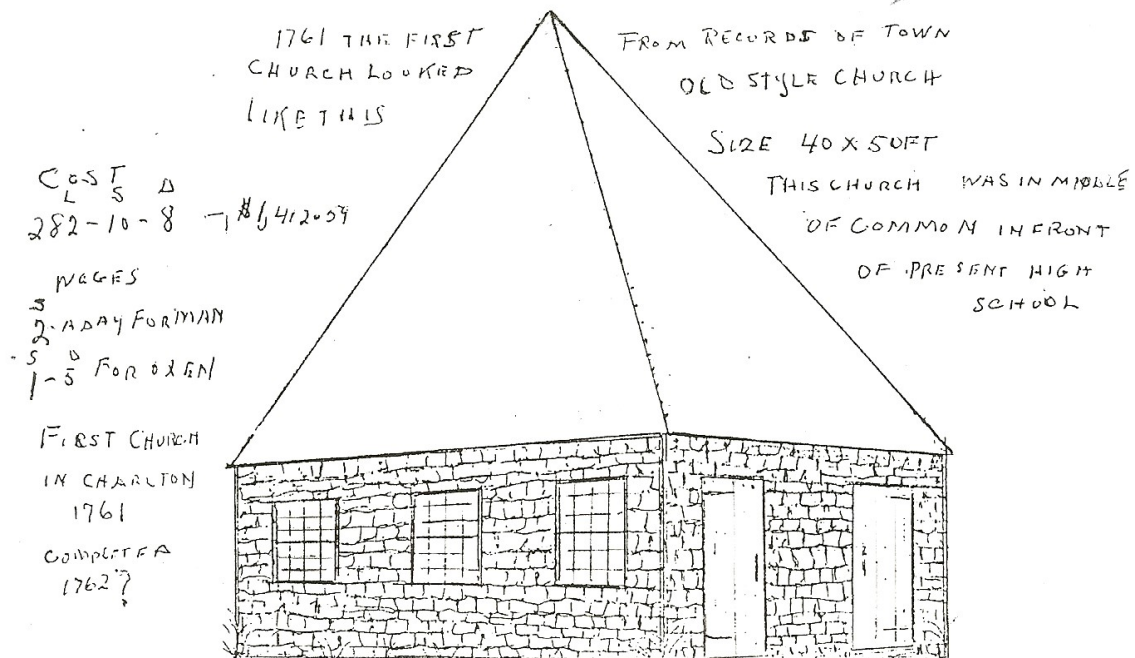 1761 THE FIRST
CHURCH LOOKED
LIKE THIS
FROM RECORDS OF TOWN
OLD STYLE CHURCH
SIZE 40 X 50FT
THIS CHURCH WAS IN MIDDLE
OF COMMON IN FRONT
OF PRESENT HIGH
SCHOOL
COST
L S D
282-10-8 - $1,412059
WAGES
S
2. A DAY FOR MAN
S D
1-5 FOR OXEN
FIRST CHURCH
IN CHARLTON
1761
COMPLETED
1762?